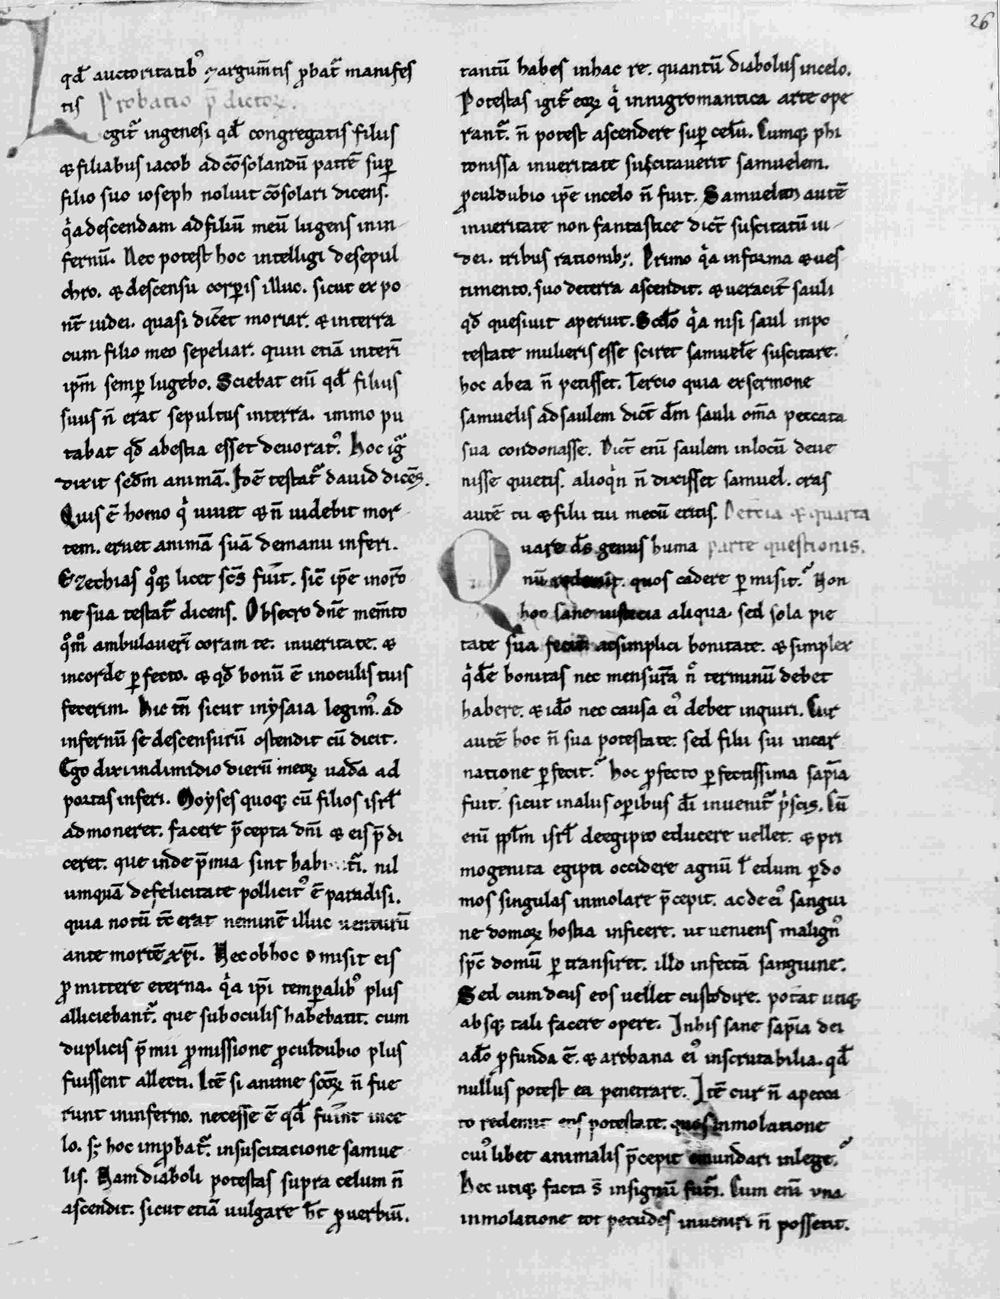 26
qđ auctoritatib᾽ ⁊ argum̄tis ꝓbat᷑ manifes
tis Probatio p̄dictoꝝ.
Legit᷑ ingenesi qđ congregatis filiis
& filiabus iacob adc̄osolandū patrē suꝑ
filio suo ioseph noluit c̄osolari dicens.
q̇a descendam adfiliū meū lugens inin
fernū. Nec potest hoc intelligi desepul
chro. & descensu corꝑis illuc. sicut ex po
nt̄ iudei. quasi dic̄et moriar. & interra
cum filio meo sepeliar. quin etiā inteři
ip̄m semꝑ lugebo. Sciebat eni̅ qđ filius
suus n̄ erat sepultus interra. immo pu
tabat qđ abestia esset deuorat᾽. Hoc ig̃
dixit sed̄m animā. Idē testat᷑ dauid dicēs.
Quis ē homo q̇ uiuet & n̄ uidebit mor
tem. eruet animā suā demanu inferi.
Ezechias q᾽qꝫ licet sc̄s fuit. sic̄ ip̄e inoro̅
ne sua testat᷑ dicens. Obsecro dn̄e mem̄to
q᾽m̊ ambulaueři coram te. inueritate. &
incorde ꝑfecto. & qđ bonū ē inoculis tuis
fecerim. Hic tn̄ sicut inẏsaia legim᾽. ad
infernū se descensurū ostendit cū dicit.
Ego dixi indimidio dierū meoꝝ uadā ad
portas inferi. Moyses quoqꝫ cū filios isrł
admoneret. facere p̄cepta dn̄i & eis p̄di
ceret. que inde p̄mia sint nil
umquā defelicitate pollicit᾽ ē paradisi.
quia notū tc̄ erat neminē illuc uenturū
ante mortē xp̄i. Nec obhoc omisit eis
ꝓmittere eterna. q̇a ip̄i temꝑalib᾽ plus
alliciebant᷑. que suboculis habebant. cum
duplicis p̄mii ꝓmissione ꝓculdubio plus
fuissent allecti. Itē si anime sc̄oꝝ n̄ fue
runt ininferno. necesse ē qđ fuer̄int ince
lo. sꝫ hoc imꝓbat᷑. insuscitacione samue
lis. Nam diaboli potestas supra celum n̄
ascendit. sicut etiā uulgare h̄t ꝓuerbiū.
tantū habes inhac re. quantū diabolus incelo.
Potestas igit᷑ eoꝝ q̇ innigromantica arte ope
rant᷑. n̄ potest ascendere suꝑ celū. Cumqꝫ phi
tonissa inueritate suscitauerit samuelem.
ꝓculdubio ip̄e incelo n̄ fuit. Samuelem autē
inueritate non fantastice dict̄ suscitatū iu
dei. tribus rationibꝫ. Primo q̇a informa & ues
timento. suo deterra ascendit. & ueracit᷑ sauli
qđ quesiuit aperuit. Scđo q̇a nisi saul inpo
testate mulieris esse sciret samuelē suscitare.
hoc abea n̄ petisset. Tercio quia exsermone
samuelis adsaulem dict̄ dm̄ sauli om̄a peccata
sua condonasse. Dict̄ enī saulem inlocū deue
nisse quietis. alioq̇n n̄ dixisset samuel. cras
autē tu & filii tui mecū eritis. Detcia & quarta
Quare ds̄ genus huma parte questionis.
nū redemit. quos cadere ꝑmisit.᷑ Non
hoc sane iusticia aliqua. sed sola pie
tate sua fecit. acsimplici bonitate. & simplex
q̇dē bonitas nec mensurā n̊ terminū debet
habere. & idō nec causa ei᾽ debet inquiri. Cur
autē hoc n̄ sua potestate. sed filii sui incar
natione ꝑfecit.᷑ hoc ꝓfecto ꝑfectissima sap̄ia
fuit. sicut inalus oꝑibus di̅ inuenit᷑ p̄scis. Cū
enī ppłm isrł deegipto educere uellet. & pri
mogenita egipti occidere agnū ł edum ꝑdo
mos singulas inmolare p̄cepit. ac de ei᾽ sangui
ne domoꝝ hostia inficere. ut ueniens malign᾽
sp̄c domū ꝑtransiret. illo infectā sanguine.
Sed cum deus eos uellet custodire. pořat utiqꝫ
absqꝫ tali facere opere. Inhis sane sap̄ia dei
adō ꝓfunda ē. & archana ei᾽ inscrutabilia. qđ
nullus potest ea penetrare. Itē cur n̄ apecca
to redemit eos potestate. quos inmolatione
cui᾽libet animalis p̄cepit emundari inlege.᷑
Hec utiqꝫ facta s̄ insignū futuři. Cum enī una
inmolatione tot pecudes inueniri n̄ possent.